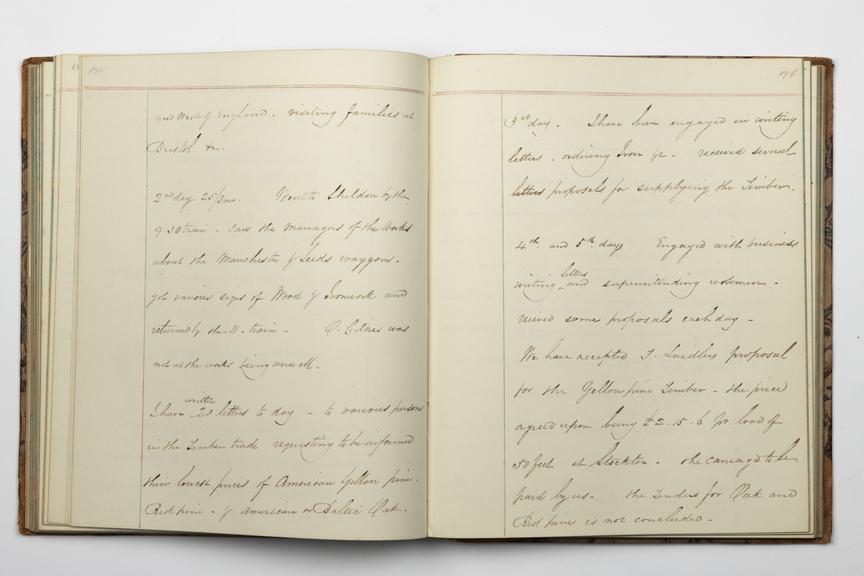 195
and West of England. visiting families at
Bristol &c.
2nd day 25/3mo. Went to Shildon by the
9-30 train - saw the managers of the Works
about the Manchester & Leeds waggons -
got various sizes of Wood & Ironwork and
returned by the 11- train - O. Gilkes was
not at the works being unwell -
I have written 20 letters to day - to various persons
in the Timber trade requesting to be informed
their lowest prices of American Yellow pine.
Red pine - & American or Baltic Oak -
196
3rd day. I have been engaged in writing
letters - ordering Iron &c - received several
letters proposals for supplying the Timber -
4th. and 5th days Engaged with business
writing letters and superintending workmen -
recieved some proposals each day -
We have accepted J. Laidlers proposal
for the Yellow pine Timber - the price
agreed upon being £2-15-6 pr. load of
50 feet at Stockton - the carriage to be
paid by us - the Tenders for Oak and
Red pine is not concluded -